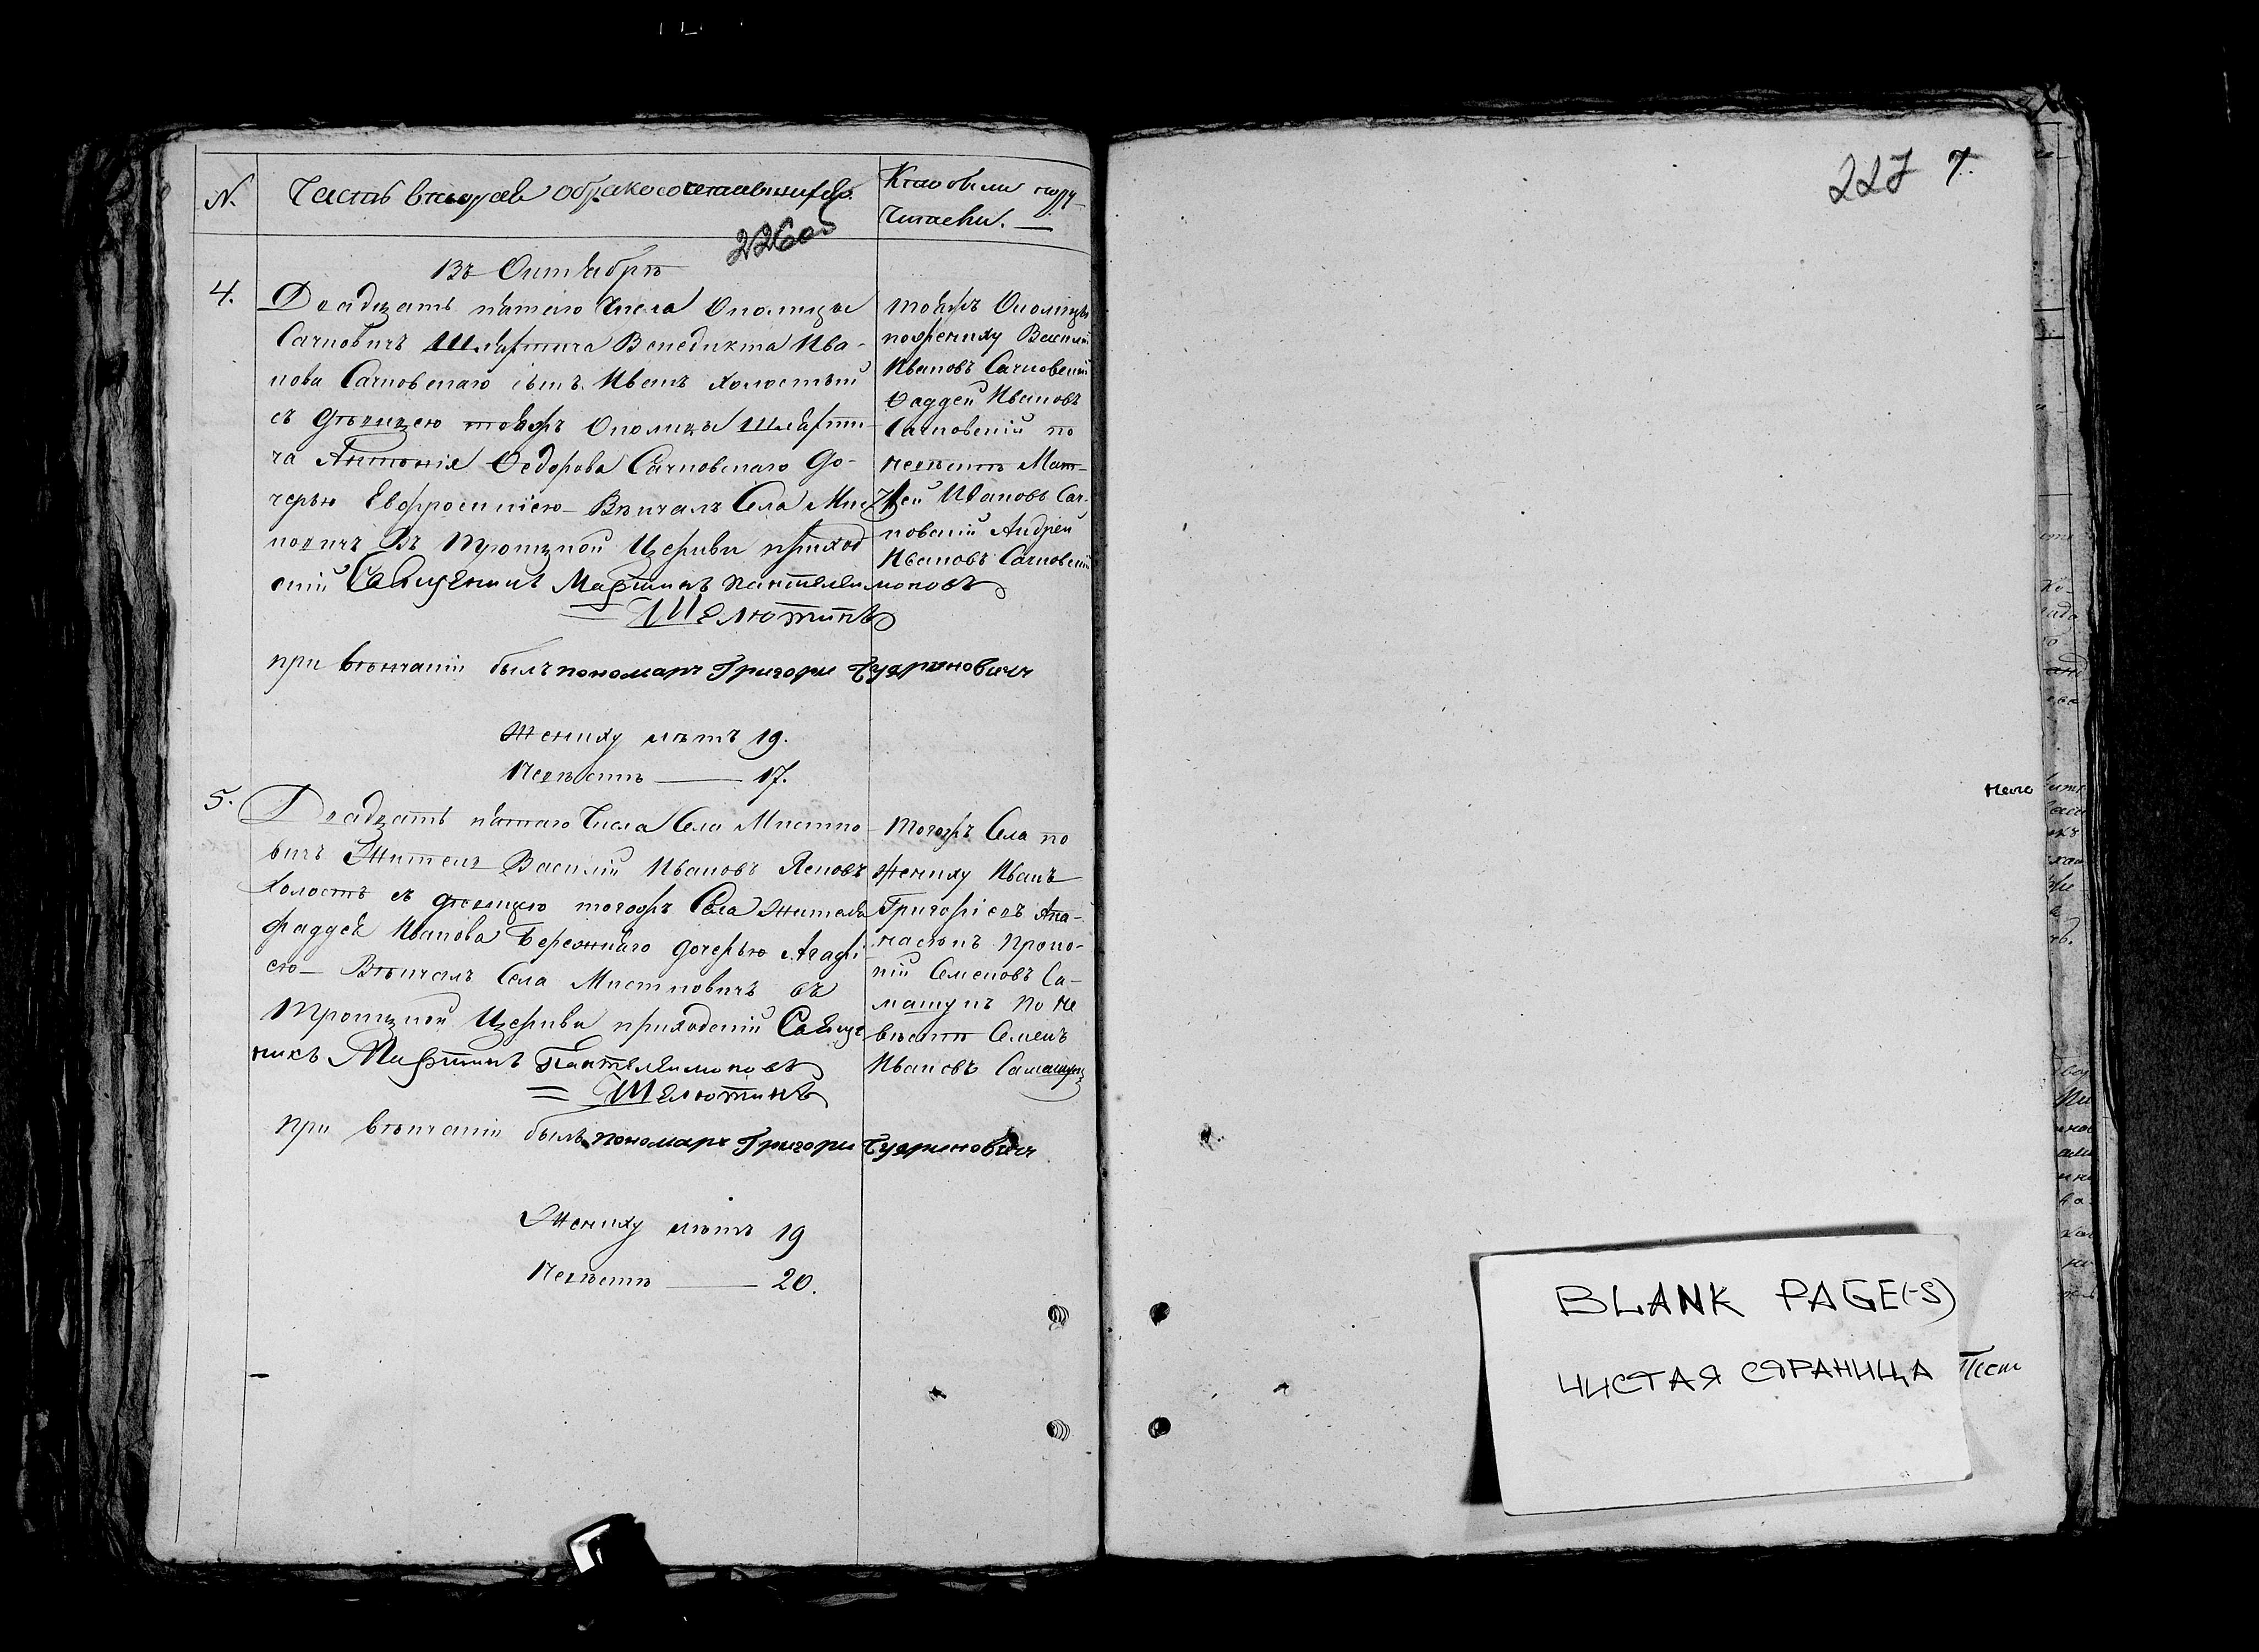 N. Часть вторая о бракосочетавшихся.
Кто были пору-
чители.
226об
Въ Октябрѣ
4. Двадцать пятаго Числа Околицы
Сачковичъ Шляхтича Венедикта Ива-
нова Сачковскаго сынъ Иванъ холостый
съ дѣвицею тояжъ Околицы Шляхти-
ча Антонія Ѳедорова Сачковскаго до-
черью Евфросиніею Вѣнчалъ Села
въ Троицкой Церкви приход
скій Священникъ Мартинъ Пантелеимоновъ
= Шелютинъ
при вѣнчаніи былъ пономаръ Григори
Жениху лѣтъ 19.
Невѣстѣ — 17.
тояжъ Околицы
по жениху Василій
Ивановъ Сачковскій
Ѳаддей Ивановъ
Сачковскій по
невѣстѣ Мат-
ѳей Ивановъ Сач-
ковскій Андрей
Ивановъ Сачковскій
5. Двадцать пятаго Числа Села Мистко-
вичъ Житель Василій Ивановъ
холостъ съ дѣвицею тогожъ Села Жителя
Фаддея Иванова Бережнаго дочерью Агафі
ею — Вѣнчалъ Села Мистковичъ въ
Троицкой Церкви приходскій Священ
никъ Мартинъ Пантелеимоновъ
= Шелютинъ
при вѣнчаніи былъ пономаръ Григори
Жениху лѣтъ 19
Невѣстѣ — 20.
Тогожъ Села по
жениху Иванъ
Григоріевъ
Проко-
пій Семеновъ Са-
по не
вѣстѣ Семенъ
Ивановъ
227 7.
BLANK PAGE(-S)
ЧИСТАЯ СТРАНИЦА